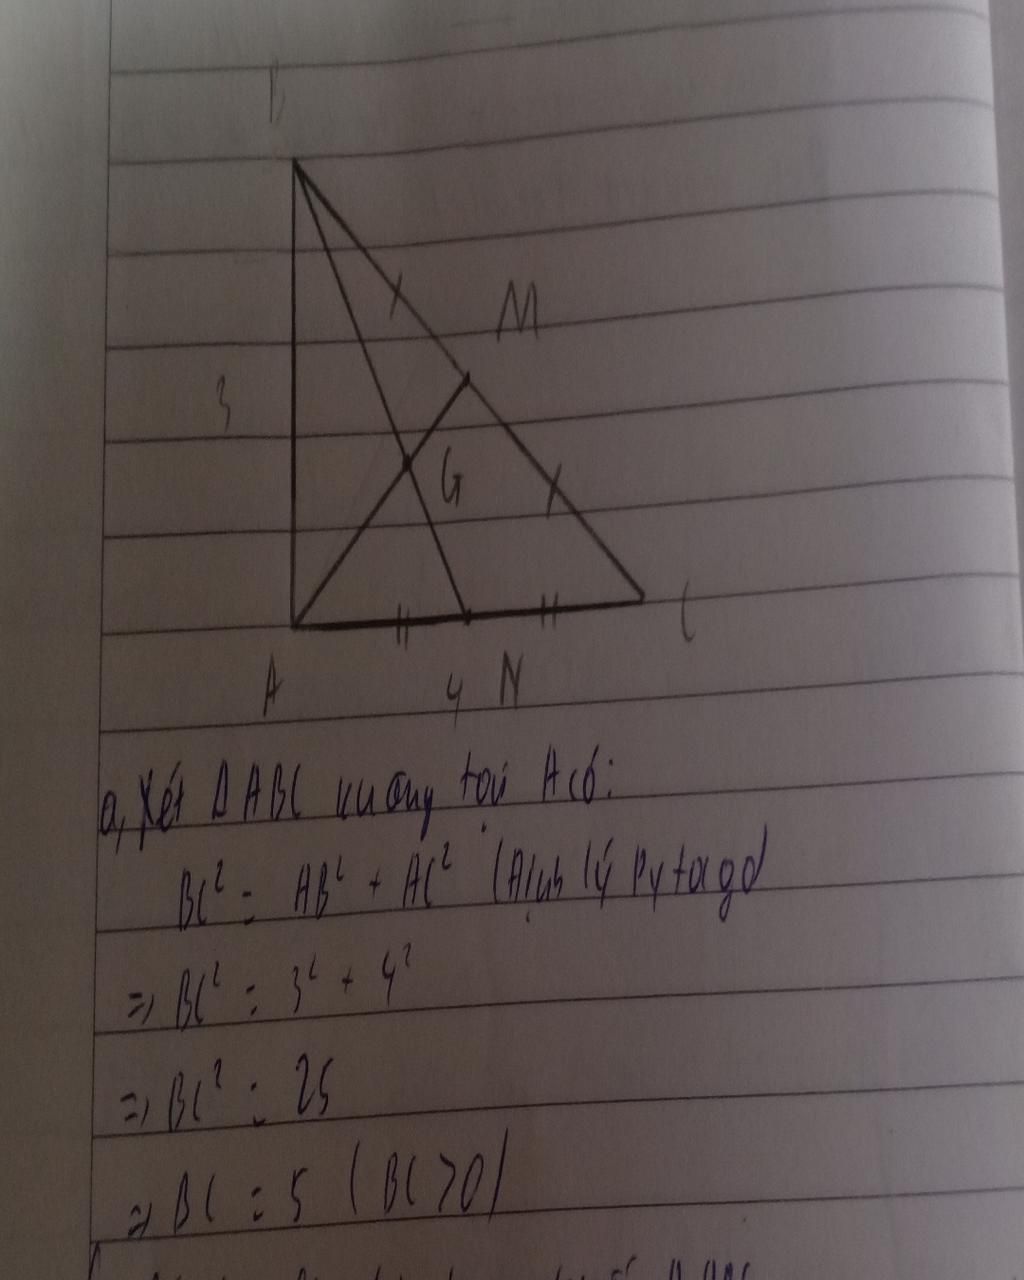 B
M
3
G
C
A
4 N
a, Xét ΔABC vuông tại A có:
BC² = AB² + AC² (Định lý Pytago)
=> BC² = 3² + 4²
=> BC² = 25
=> BC = 5 (BC > 0)